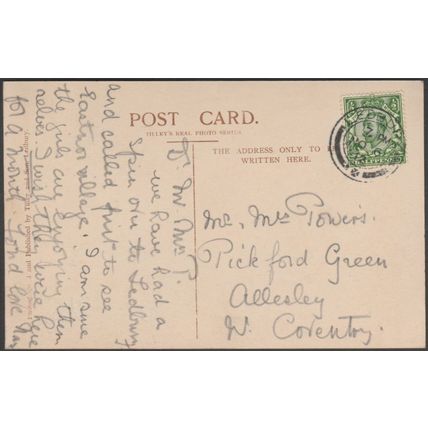 POST CARD.
TILLEY'S REAL PHOTO SERIES.
THE ADDRESS ONLY TO
WRITTEN HERE.
Mr. Mrs Powers.
Pickford Green
Allesley
Nr. Coventry.
Dr Mr Mrs P.
we have had a
spin over to Ledbury
and called first to see
Eastnor village. I am sure
the girls are enjoying them
selves. I wish they were here
for a month. Fond love
and Published by Tilley
LEDBURY